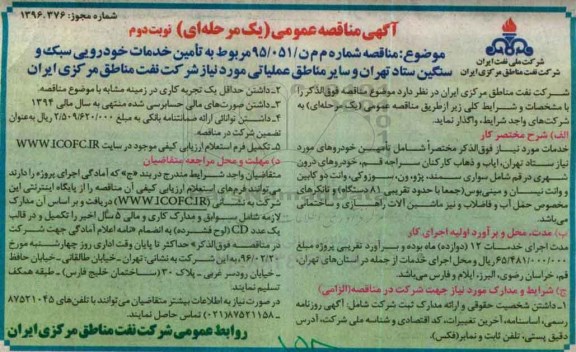 شماره مجوز: ۱۳۹۶.۳۷۶
آگهی مناقصه عمومی (یک مرحله‌ای) نوبت دوم
شرکت ملی نفت ایران
شرکت نفت مناطق مرکزی ایران
موضوع: مناقصه شماره م م ن/۹۵/۰۵۱ مربوط به تأمین خدمات خودرویی سبک و
سنگین ستاد تهران و سایر مناطق عملیاتی مورد نیاز شرکت نفت مناطق مرکزی ایران
شرکت نفت مناطق مرکزی ایران در نظر دارد موضوع مناقصه فوق‌الذکر را
با مشخصات و شرایط کلی زیر از طریق مناقصه عمومی (یک مرحله‌ای) به
شرکت‌های واجد شرایط، واگذار نماید.
الف) شرح مختصر کار
خدمات مورد نیاز فوق‌الذکر مختصراً شامل تأمین خودروهای مورد
نیاز ستاد تهران، ایاب و ذهاب کارکنان سراجه قم، خودروهای درون
شهری در قم شامل سواری سمند، پژو، ون، سوزوکی، وانت دو کابین
و وانت نیسان و مینی‌بوس (جمعا با حدود تقریبی ۸۱ دستگاه) و تانکرهای
مخصوص حمل آب و فاضلاب و نیز ماشین آلات راهسازی و ساختمانی
می‌باشد.
ب) مدت، محل و برآورد اولیه اجرای کار
مدت اجرای خدمات ۱۲ (دوازده) ماه بوده و برآورد تقریبی پروژه مبلغ
۶۵/۴۸۱/۰۰۰/۰۰۰ ریال و محل اجرای خدمات از جمله در استان‌های تهران،
قم، خراسان رضوی، البرز، ایلام و فارس می‌باشد.
ج) شرایط و مدارک مورد نیاز جهت شرکت در مناقصه (الزامی)
۱ـ داشتن شخصیت حقوقی و ارائه مدارک ثبت شرکت شامل: آگهی روزنامه
رسمی، اساسنامه، آخرین تغییرات، کد اقتصادی و شناسه ملی شرکت، آدرس
دقیق پستی، تلفن ثابت و نمابر (فکس).
۲ـ داشتن حداقل یک تجربه کاری در زمینه مشابه با موضوع مناقصه.
۳ـ داشتن صورت‌های مالی حسابرسی شده منتهی به سال مالی ۱۳۹۴
۴ـ داشتن توانائی ارائه ضمانتنامه بانکی به مبلغ ۲/۵۰۹/۶۲۰/۰۰۰ ریال به عنوان
تضمین شرکت در مناقصه.
۵ـ تکمیل فرم استعلام ارزیابی کیفی موجود در سایت WWW.ICOFC.IR
د) مهلت و محل مراجعه متقاضیان
متقاضیان واجد شرایط مندرج در بند «ج» که آمادگی اجرای پروژه را دارند
می‌توانند فرم‌های استعلام ارزیابی کیفی آن مناقصه را از پایگاه اینترنتی این
شرکت به نشانی (WWW.ICOFC.IR) دریافت و بر اساس آن مدارک
لازمه شامل سوابق و مدارک کاری و مالی ۵ سال اخیر را تکمیل و در قالب
یک عدد CD (لوح فشرده) به انضمام «نامه اعلام آمادگی جهت شرکت
در مناقصه فوق‌الذکر» حداکثر تا پایان وقت اداری روز چهارشنبه مورخ
۹۶/۰۲/۲۰ به این شرکت به نشانی: تهران ـ خیابان طالقانی ـ خیابان حافظ
ـ خیابان رودسر غربی ـ پلاک ۳۰ (ساختمان خلیج فارس) ـ طبقه همکف
تسلیم نمایند.
در صورت نیاز به اطلاعات بیشتر متقاضیان می‌توانند با تلفن‌های ۸۷۵۲۱۰۴۵
ـ ۸۷۵۲۱۱۵۸ (۰۲۱) تماس حاصل نمایند.
روابط عمومی شرکت نفت مناطق مرکزی ایران